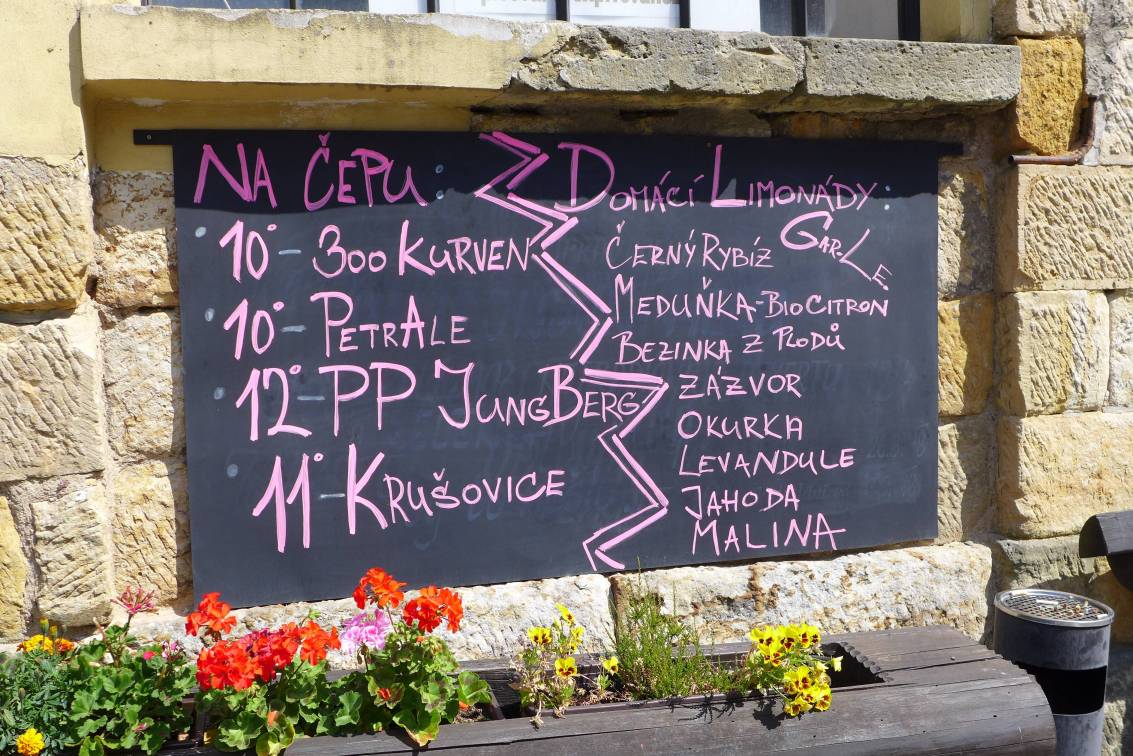 NA ČEPU:
10° - 300 KURVEN
10° - PETRALE
12° - PP JUNGBERG
11° - KRUŠOVICE
DOMÁCÍ LIMONÁDY:
ČERNÝ RYBÍZ
MEDUŇKA - BIO CITRON
BEZINKA Z PLODŮ
ZÁZVOR
OKURKA
LEVANDULE
JAHODA
MALINA